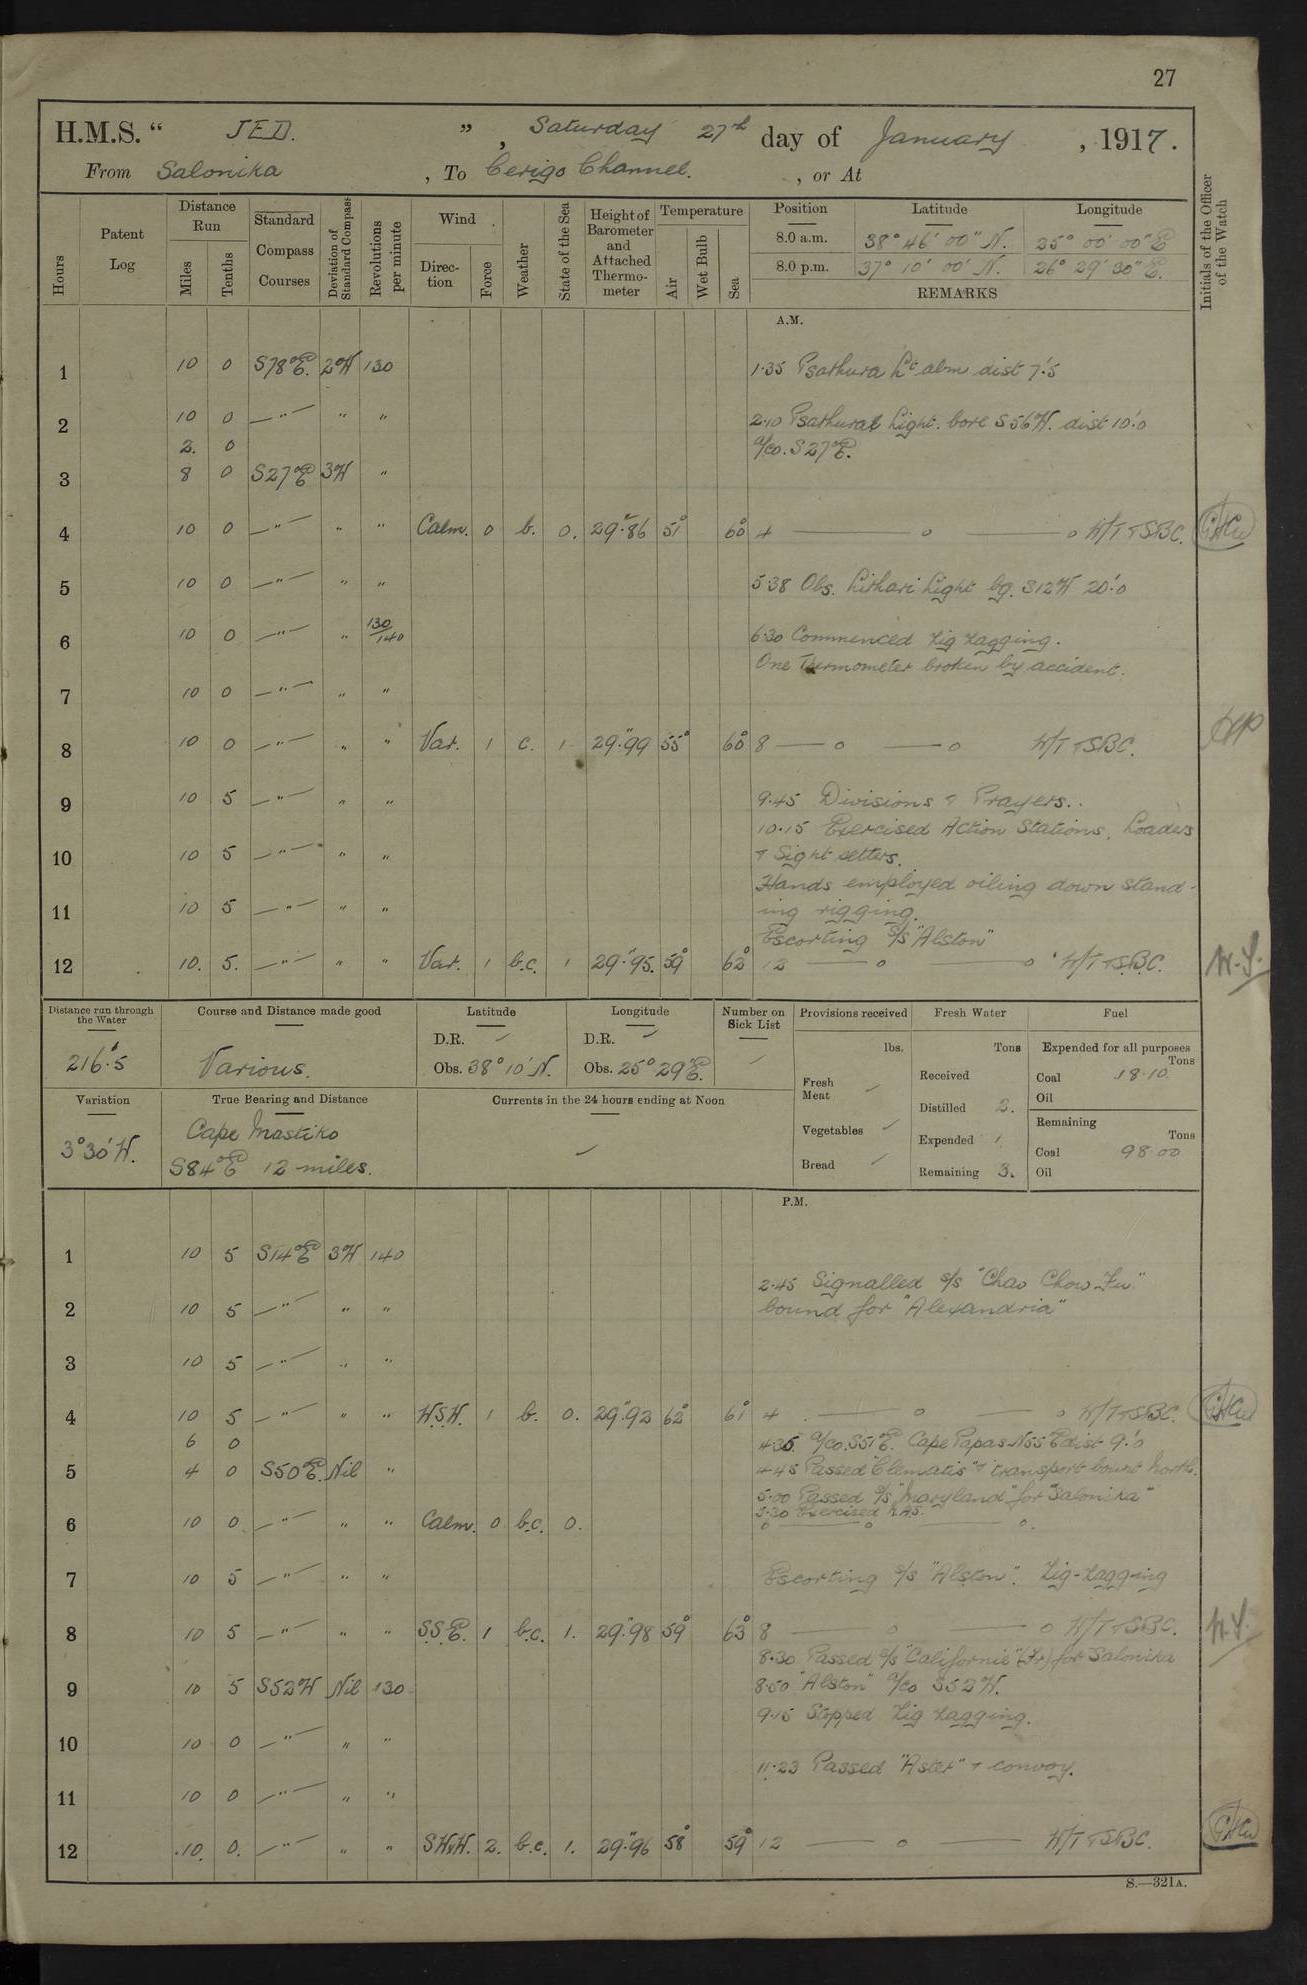 27
H.M.S. “ JED. ”, Saturday 27th day of January, 1917.
From Salonika, To Cerigo Channel., or At
Hours
Patent Log
Distance Run
Miles
Tenths
Standard Compass Courses
Deviation of Standard Compass
Revolutions per minute
Wind
Direction
Force
Weather
State of the Sea
Height of Barometer and Attached Thermometer
Temperature
Air
Wet Bulb
Sea
Position Latitude Longitude
8.0 a.m. 38° 46' 00" N. 25° 00' 00" E
8.0 p.m. 37° 10' 00" N. 26° 29' 30" E.
REMARKS
Initials of the Officer of the Watch
A.M.
1 10 0 S78°E. 2°W 130 1.35 Psathura Lt abm dist 7'.5
2 10 0 —"— " " 2.10 Psathura Light. bore S56°W. dist 10'.0
2. 0 a/co. S27°E.
3 8 0 S27°E 3W "
4 10 0 —"— " " Calm. 0 b. 0. 29".86 51° 60° 4 — o — o W/T & SBC.
5 10 0 —"— " " 5.38 Obs. Lithari Light bg. S12W 20'.0
6 10 0 —"— " 130/140 6.30 Commenced Zig Zagging.
One Thermometer broken by accident.
7 10 0 —"— " "
8 10 0 —"— " " Var. 1 c. 1 29".99 55° 60° 8 — o — o W/T & SBC.
9 10 5 —"— " " 9.45 Divisions & Prayers.
10.15 Exercised Action Stations, Loaders
10 10 5 —"— " " & Sight setters.
Hands employed oiling down stand-
11 10 5 —"— " " ing rigging.
Escorting S/S "Alston"
12 10. 5. —"— " " Var. 1 b.c. 1 29".95. 59° 62° 12 — o — o W/T & S.B.C. W.S.
Distance run through the Water
216'.5
Course and Distance made good
Various.
Latitude
D.R. ✓
Obs. 38° 10' N.
Longitude
D.R. ✓
Obs. 25° 29' E.
Number on Sick List
✓
Provisions received
lbs.
Fresh Meat ✓
Vegetables ✓
Bread ✓
Fresh Water
Tons
Received
Distilled 2.
Expended 1
Remaining 3.
Fuel
Expended for all purposes
Tons
Coal 18.10
Oil
Remaining
Tons
Coal 98.00
Oil
Variation
3° 30' W.
True Bearing and Distance
Cape Mastiko
S84°E 12 miles.
Currents in the 24 hours ending at Noon
✓
P.M.
1 10 5 S14°E 3W 140
2.45 Signalled S/S "Chao Chow Fu"
2 10 5 —"— " " bound for "Alexandria"
3 10 5 —"— " "
4 10 5 —"— " " W.S.W. 1 b. 0. 29".93 62° 61° 4 — o — o W/T & SBC.
6 0 4.35 a/co. S51°E. Cape Papas N55°E dist 9'.0
5 4 0 S50°E. Nil " 4.45 Passed "Clematis" & transport bound North.
5.00 Passed S/S "Maryland" for "Salonika"
5.30 Exercised
6 10 0 —"— " " Calm. 0 b.c. 0. o — o — o.
7 10 5 —"— " " Escorting S/S "Alston". Zig-Zagging
8 10 5 —"— " " S.S.E. 1 b.c. 1. 29".98 59° 63° 8 — o — o W/T & SBC. W.S.
8.30 Passed S/S "Californie" (Fr) for Salonika
9 10 5 S52W Nil 130 8.50 "Alston" a/co S52W.
9.15 Stopped Zig Zagging.
10 10 0 —"— " "
11.23 Passed "Aster" & convoy.
11 10 0 —"— " "
12 10. 0. —"— " " SWxW. 2. b.c. 1. 29".96 58° 59° 12 — o — W/T & SBC.
S.—321A.